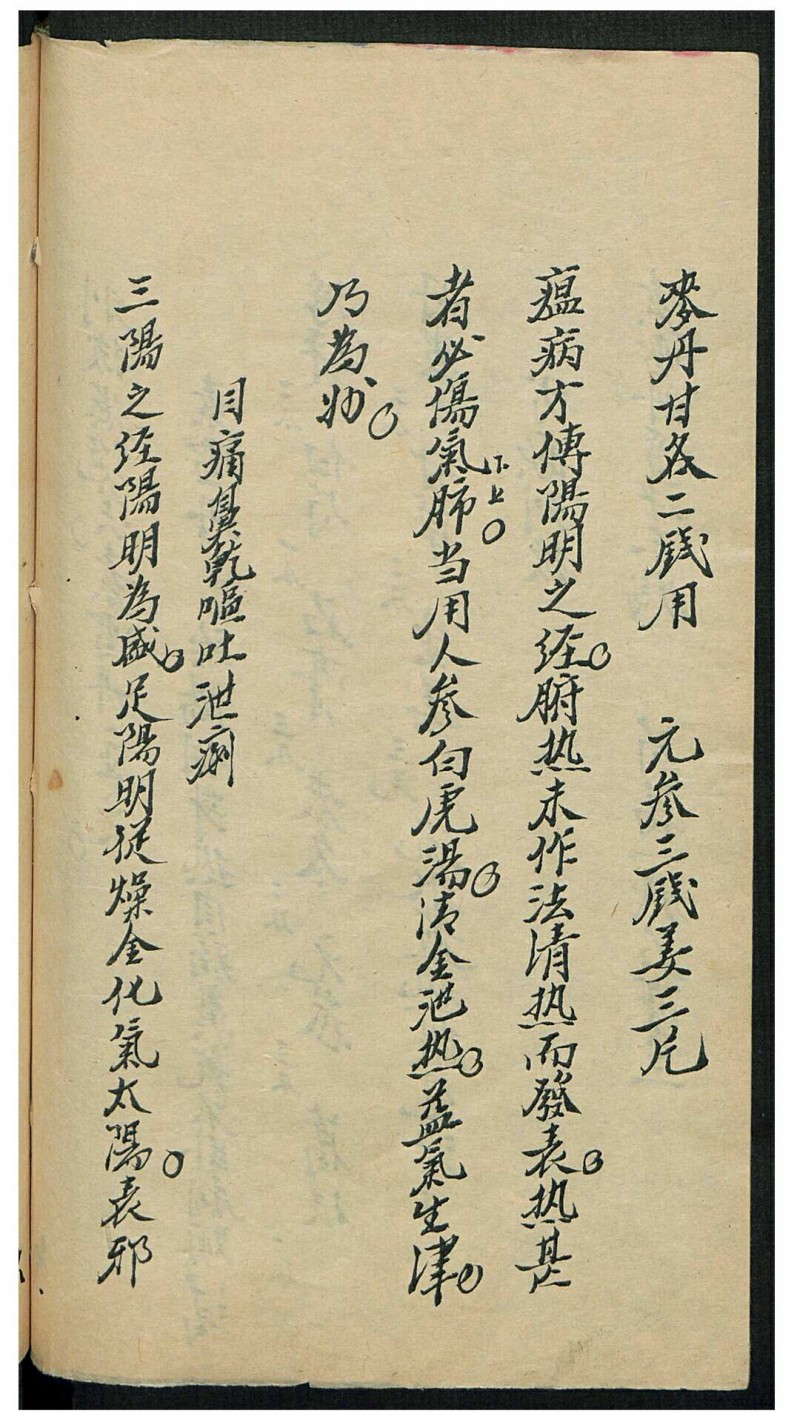 麥丹甘各二錢用　元參三錢姜三片
瘟病方傳陽明之経腑热未作法清热而發表热甚
者必傷氣肺下上当用人參白虎湯清金泄热益氣生津
乃為妙
目痛鼻乾嘔吐泄痢
三陽之経陽明為盛足陽明從燥金化氣太陽表邪